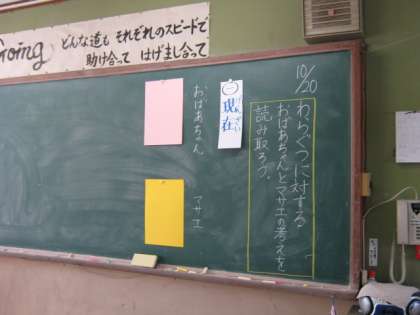 Going
どんな道も それぞれのスピードで
助け合って はげまし合って
10/20
わらぐつに対する
おばあちゃんとマサエの考えを
読み取ろう。
一
現在
げんざい
おばあちゃん
マサエ